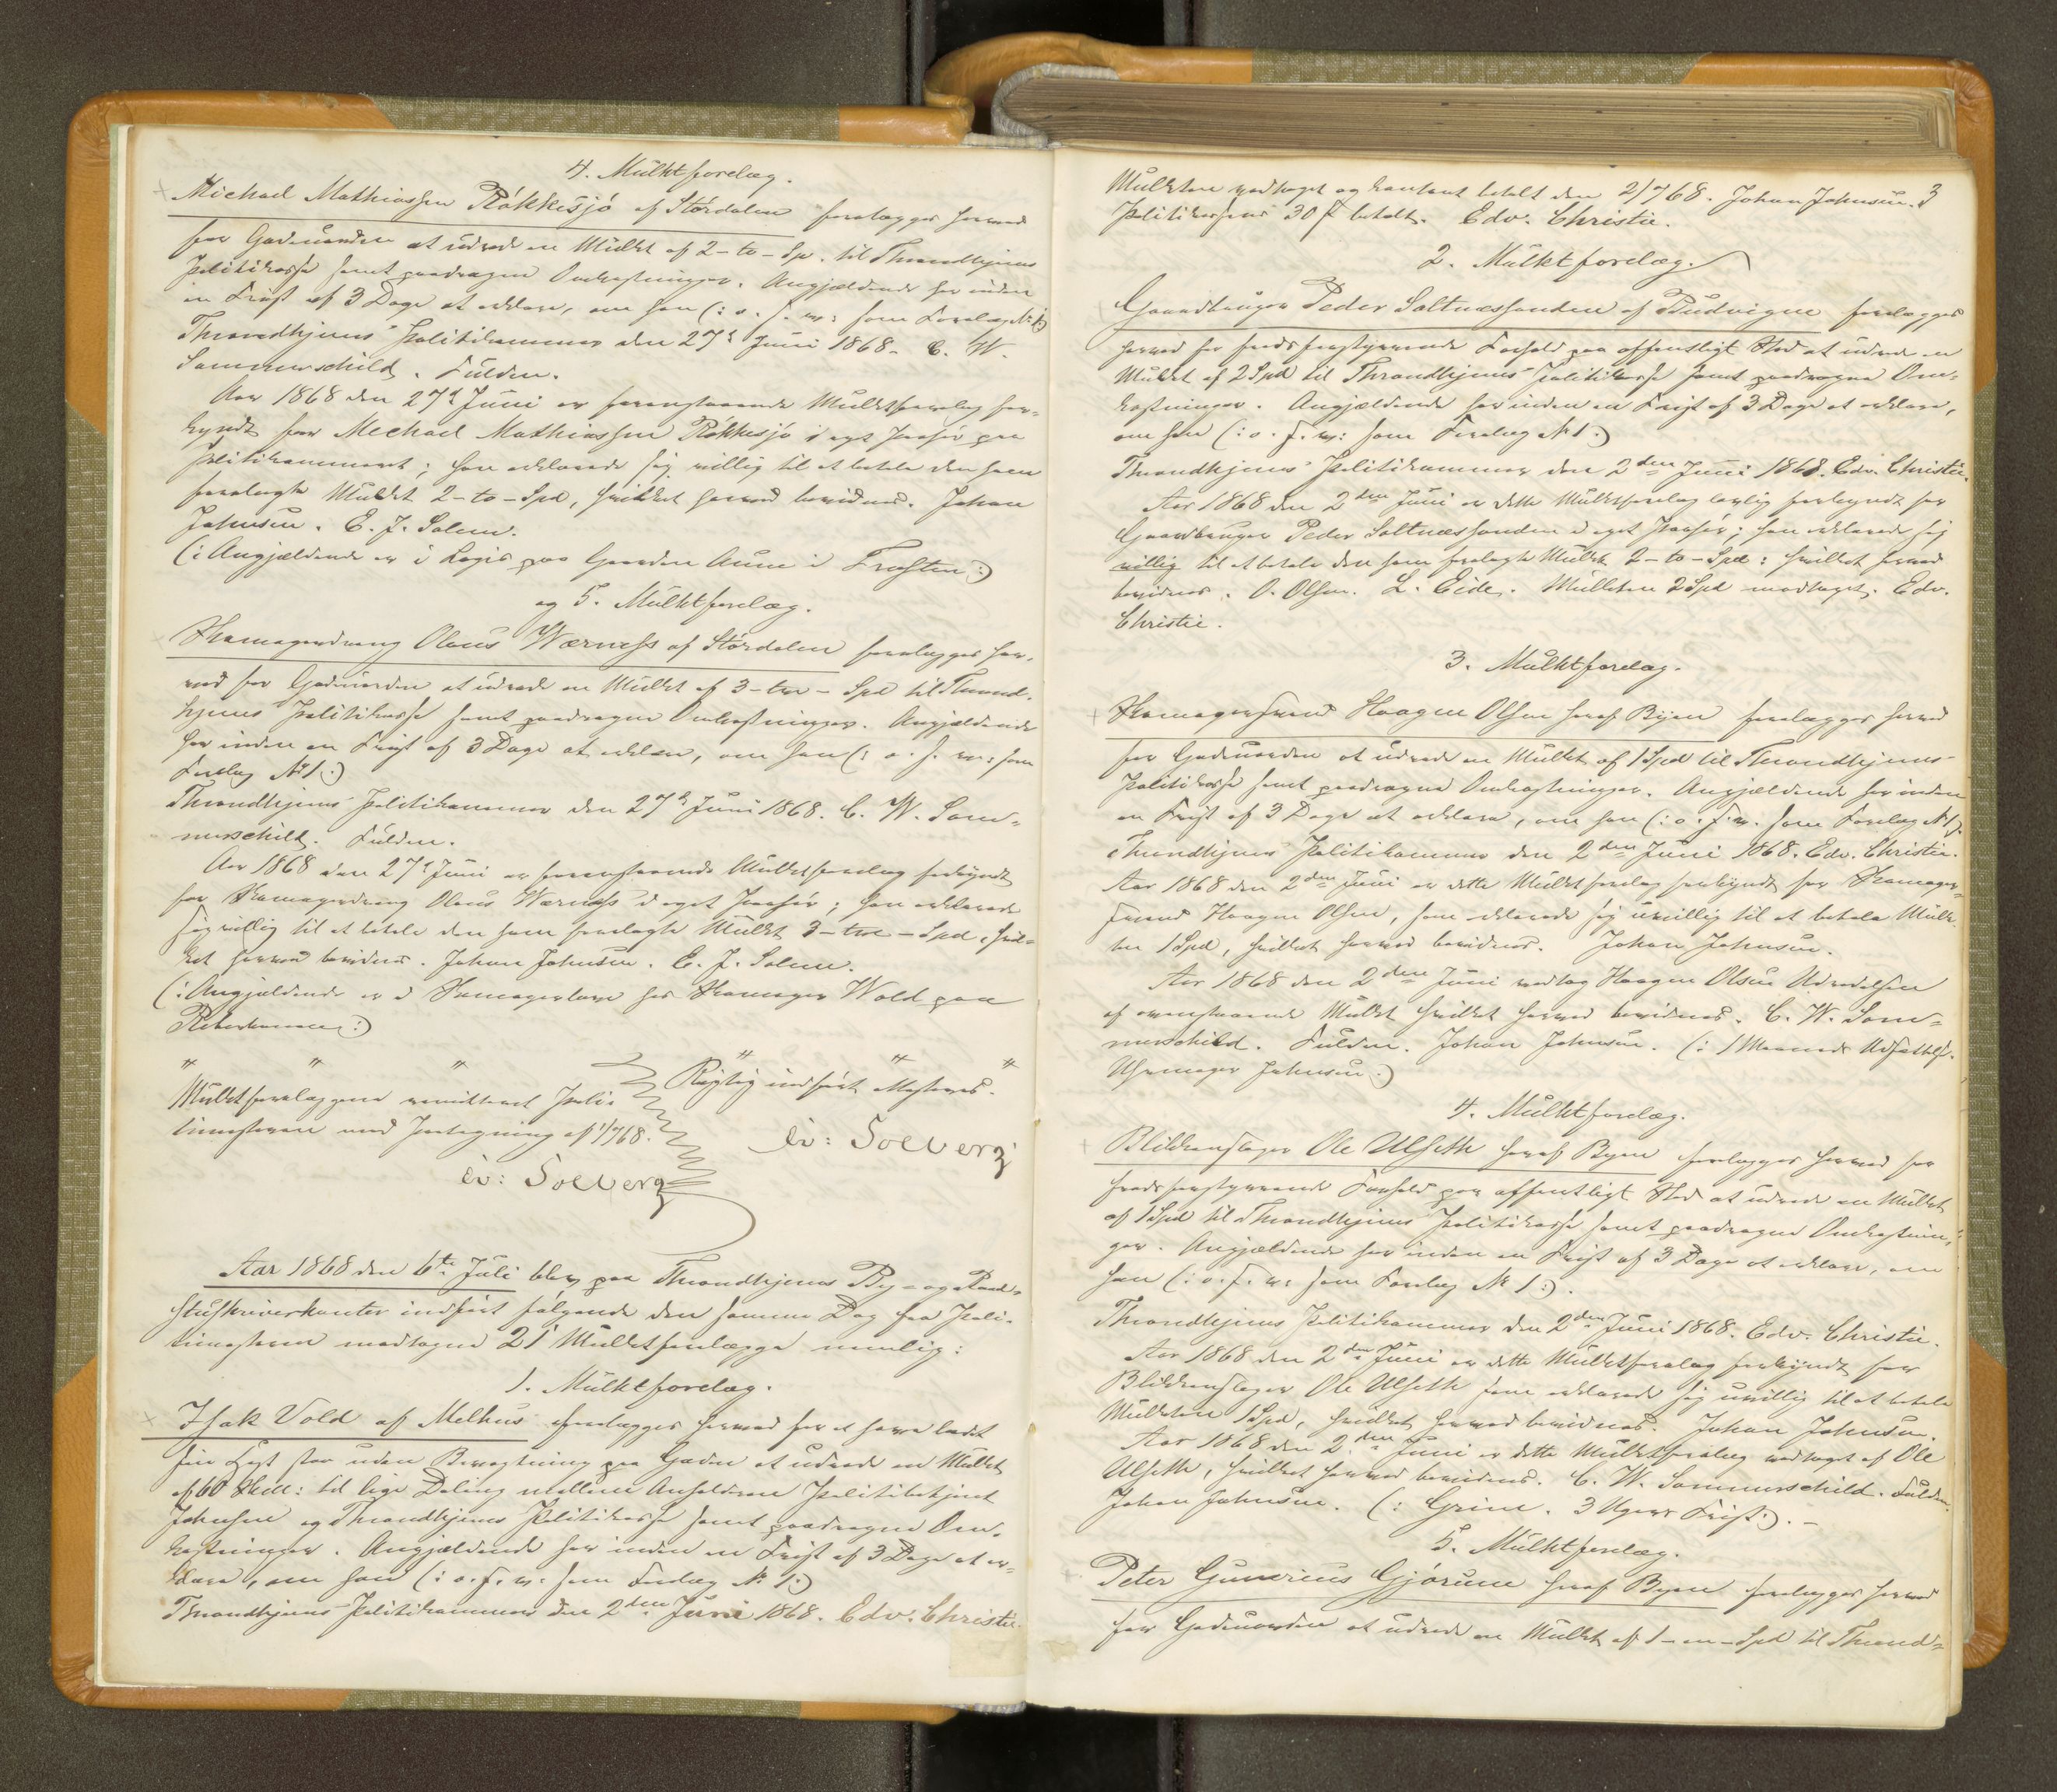 4. Mulktforelæg.
Michael Mathiassen Røkkesjø af Størdalen forelægges herved
for Gadeuorden at udrede en Mulkt af 2 - to - Sp. til Throndhjems
Politikasse samt paadragne Omkostninger. Angjældende har inden
en Frist af 3 Dage at erklære, om han (: o. s. v. som Forelæg № 1:)
Throndhjems Politikammer den 27de Juni 1868. C. W.
Sommerschild. Fuldm.
Aar 1868 den 27de Juni er foranstaaende Mulktforelæg for-
kyndt for Mechael Mathiassen Røkkesjø i eget Paahør paa
Politikammeret; han erklærede sig villig til at betale den ham
forelagte Mulkt 2 - to - Spd, hvilket herved bevidnes. Johan
Johnsen. E. J. Solem.
(: Angjældende er i Logis paa Gaarden Aune i Frosten :)
og 5. Mulktforelæg.
Skomagerdreng Olaus Værness af Størdalen forelægges her-
ved for Gadeuorden at udrede en Mulkt af 3 - tre - Spd til Thrond-
hjems Politikasse samt paadragne Omkostninger. Angjældende
har inden en Frist af 3 Dage at erklære, om han (: o. s. v. som
Forelæg № 1 :)
Throndhjems Politikammer den 27de Juni 1868. C. W. Som-
merschild. Fuldm.
Aar 1868 den 27de Juni er foranstaaende Mulktforelæg forkyndt
for Skomagerdreng Olaus Værness i eget Paahør; han erklærede
sig villig til at betale den ham forelagte Mulkt 3 - tre - Spd, hvil-
ket herved bevidnes. Johan Johnsen. E. J. Solem.
(: Angjældende er i Skomagerlære hos Skomager Wold paa
:)
" " " " " "
Rigtig indført attesteres.
Mulktforelæggene remitteret Poli-
timesteren med Paategning af 1/7 68.
ev: Solberg
ev: Solberg
Aar 1868 den 6te Juli blev paa Throndhjems By- og Raad-
stuskriverkontor indført følgende den samme Dag fra Poli-
timesteren modtagne 21 Mulktforelægge nemlig:
1. Mulktforelæg.
Isak Vold af Melhus forelægges herved for at have ladet
sin Hest staa uden Bevogtning paa Gaden at udrede en Mulkt
af 60 Skill: til lige Deling mellem Anholderen Politibetjent
Johnsen og Throndhjems Politikasse samt paadragne Om-
kostninger. Angjældende har inden en Frist af 3 Dage at er-
klære, om han (: o. s. v. som Forelæg № 1 :)
Throndhjems Politikammer den 2den Juni 1868. Edv. Christie.
3
Mulkten vedtaget og kontant betalt den 2/7 68. Johan Johnsen.
Politikassens 30 ß betalt. Edv. Christie.
2. Mulktforelæg.
Gaardbruger Peder Saltnæssanden af Budvigen forelægges
herved for fredsforstyrrende Forhold paa offentligt Sted at udrede en
Mulkt af 2 Spd til Throndhjems Politikasse samt paadragne Om-
kostninger. Angjældende har inden en Frist af 3 Dage at erklære,
om han (: o. s. v: som Forelæg № 1 :)
Throndhjems Politikammer den 2den Juni 1868. Edv. Christie.
Aar 1868 den 2den Juni er dette Mulktforelæg lovlig forkyndt for
Gaardbruger Peder Saltnæssanden i eget Paahør; han erklærede sig
villig til at betale den ham forelagte Mulkt 2 - to - Spd: hvilket herved
bevidnes. O. Olsen. L. Eide. Mulkten 2 Spd modtaget. Edv.
Christie.
3. Mulktforelæg.
Skomagersvend Haagen Olsen heraf Byen forelægges herved
for Gadeuorden at udrede en Mulkt af 1 Spd til Throndhjems
Politikasse samt paadragne Omkostninger. Angjældende har inden
en Frist af 3 Dage at erklære, om han (: o. s. v. som Forelæg № 1 :)
Throndhjems Politikammer den 2den Juni 1868. Edv. Christie.
Aar 1868 den 2den Juni er dette Mulktforelæg forkyndt for Skomager-
svend Haagen Olsen, som erklærede sig uvillig til at betale Mulk-
ten 1 Spd, hvilket herved bevidnes. Johan Johnsen.
Aar 1868 den 2den Juni vedtog Haagen Olsen Udredelsen
af ovenstaaende Mulkt hvilket herved bevidnes. C. W. Som-
merschild. Fuldm. Johan Johnsen. (: 1 Maaneds Udsættelse.
Uhrmager Johnsen :)
4. Mulktforelæg.
Blikkenslager Ole Ulseth heraf Byen forelægges herved for
fredsforstyrrende Forhold paa offentligt Sted at udrede en Mulkt
af 1 Spd til Throndhjems Politikasse samt paadragne Omkostnin-
ger. Angjældende har inden en Frist af 3 Dage at erklære, om
han (: o. s. v: som Forelæg № 1 :).
Throndhjems Politikammer den 2den Juni 1868. Edv. Christie.
Aar 1868 den 2den Juni er dette Mulktforelæg forkyndt for
Blikkenslager Ole Ulseth som erklærede sig uvillig til at betale
Mulkten 1 Spd, hvilket herved bevidnes. Johan Johnsen.
Aar 1868 den 2den Juni er dette Mulktforelæg vedtaget af Ole
Ulseth, hvilket herved bevidnes. C. W. Sommerschild. Fuldm.
Johan Johnsen. (: Grim. 3 Ugers Frist :). -
5. Mulktforelæg.
Peter Gunerius Gjørum heraf Byen forelægges herved
for Gadeuorden at udrede en Mulkt af 1 - en - Spd til Thrond-